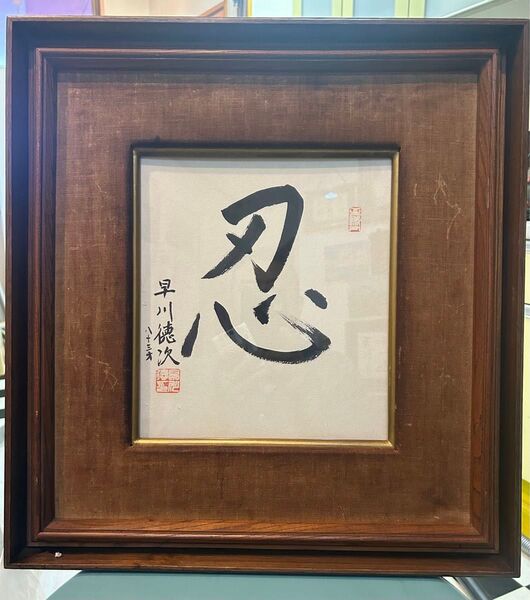 忍
早川徳次
八十三才